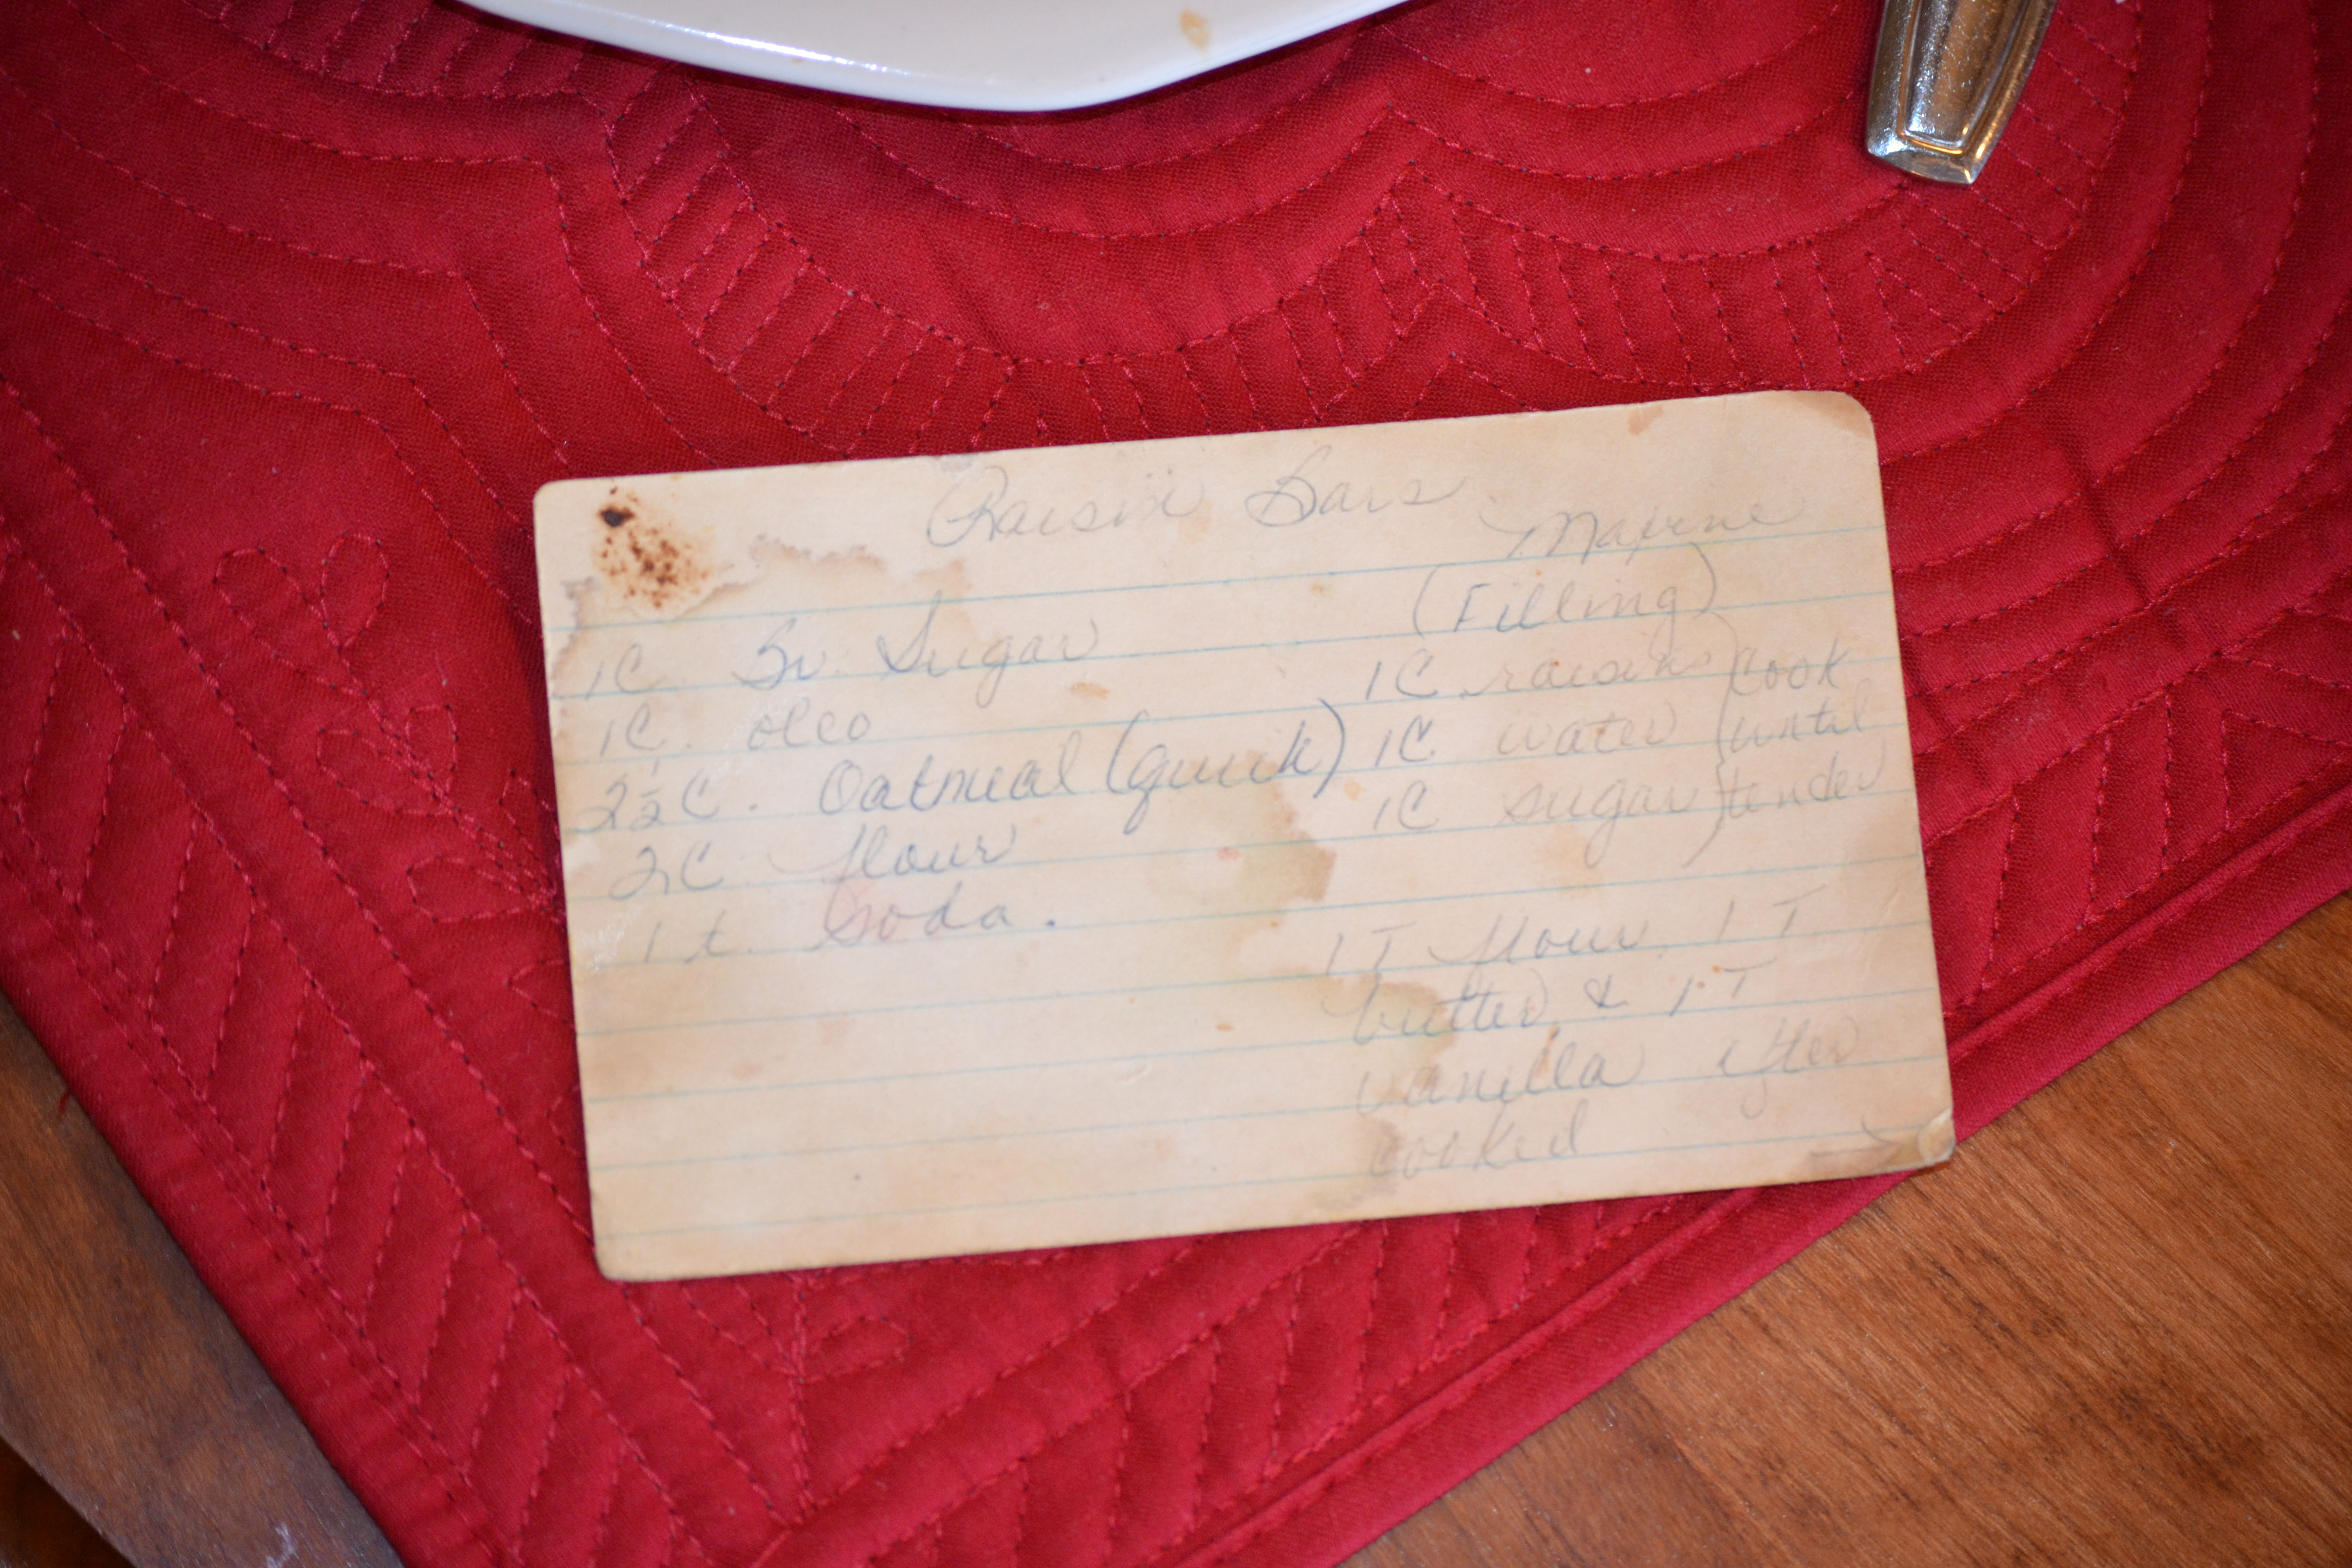 Raisin Bars
Maxine
1C Br. Sugar
1C. oleo
2 1/2 C. Oatmeal (quick)
2C flour
1 t. Soda.
(Filling)
1C raisins } cook
1C water } until
1C sugar } tender
1 T flour, 1 T
butter & 1 T
vanilla after
cooked